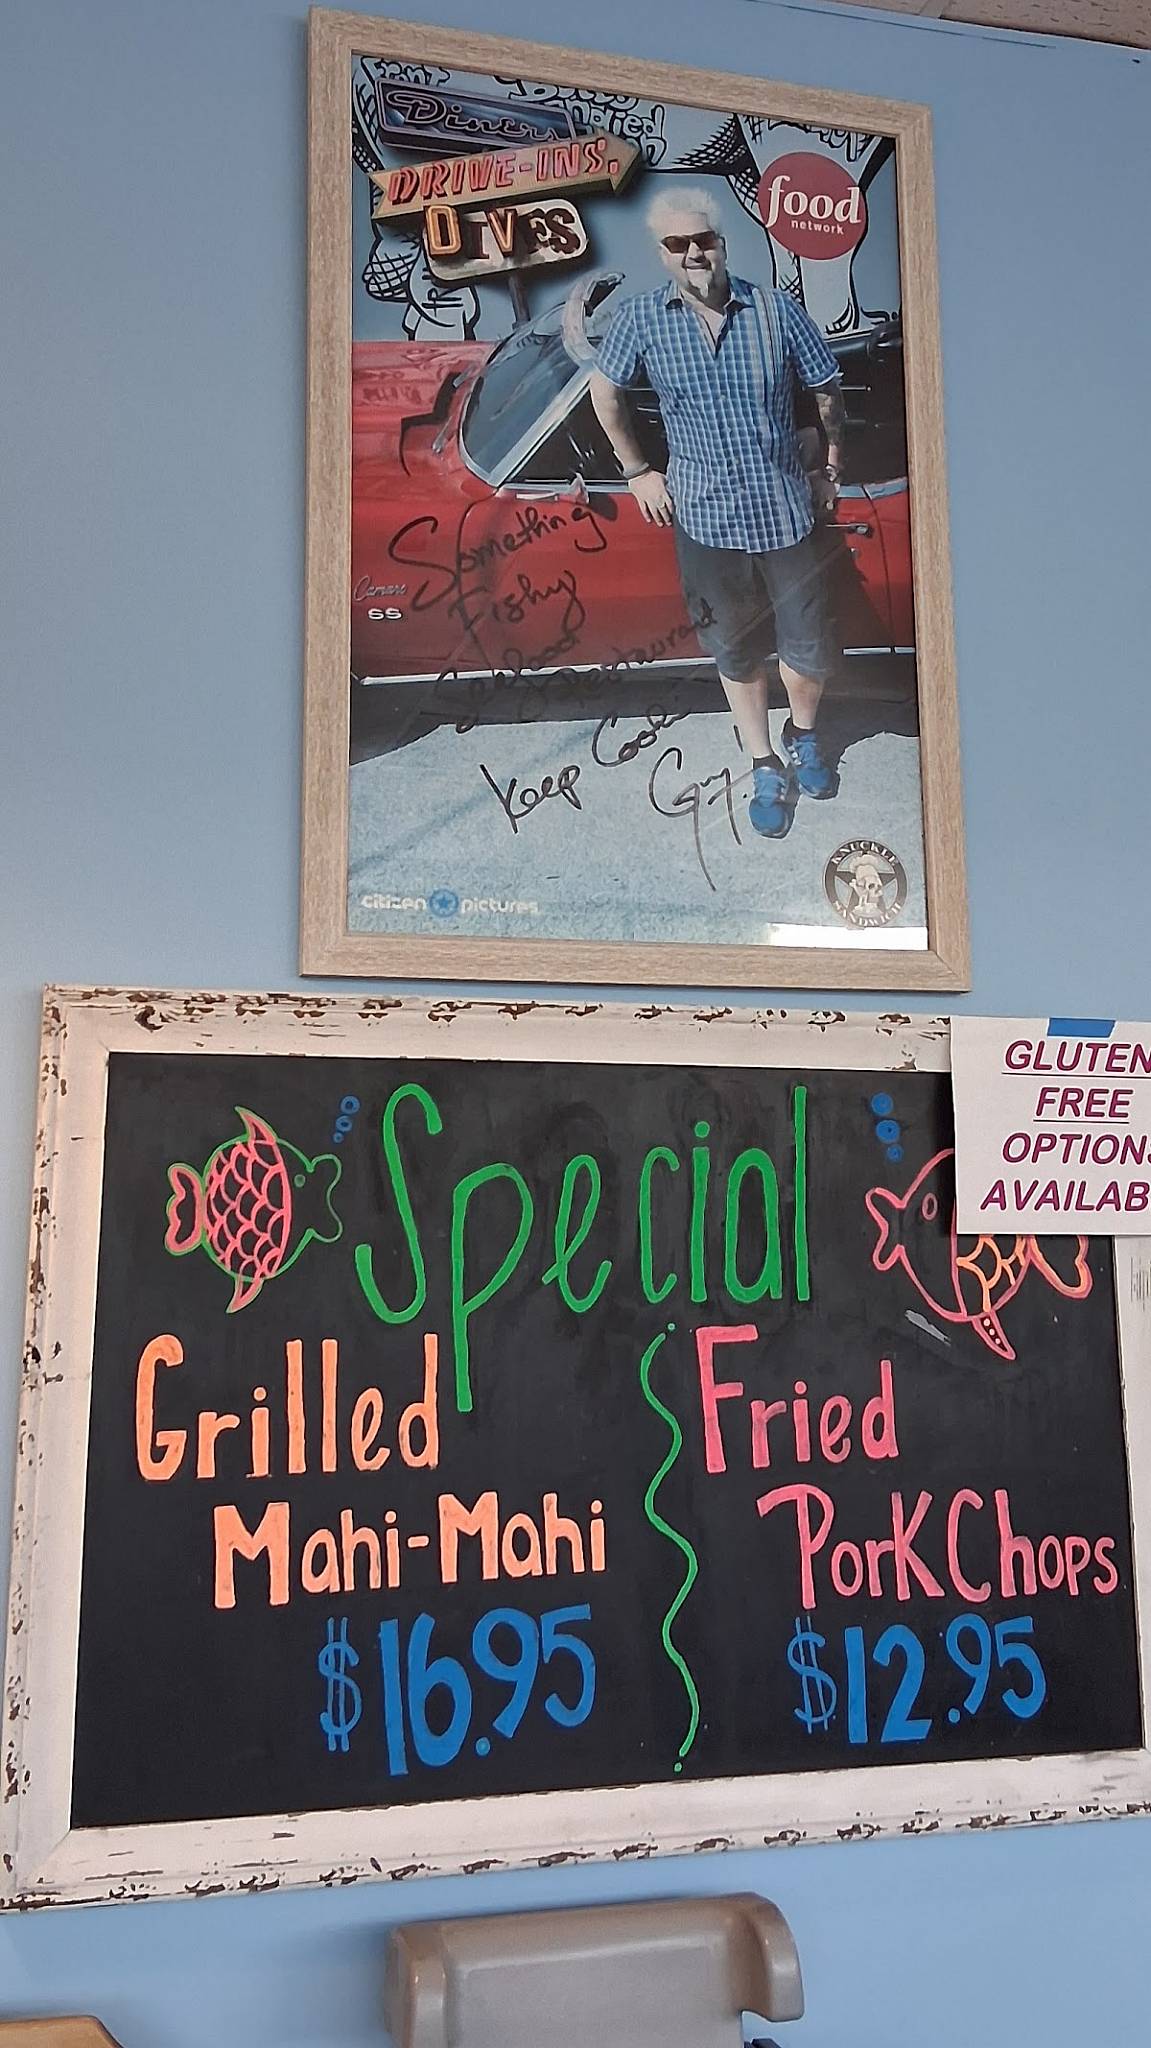 Diners
DRIVE-INS,
DIVES
food
network
Camaro
SS
Something
Fishy
Seafood
Restaurant
Keep Cookin
Guy!
citizen pictures
KNUCKLE
SANDWICH
GLUTEN
FREE
OPTIONS
AVAILAB
Special
Grilled
Mahi-Mahi
$16.95
Fried
Pork Chops
$12.95